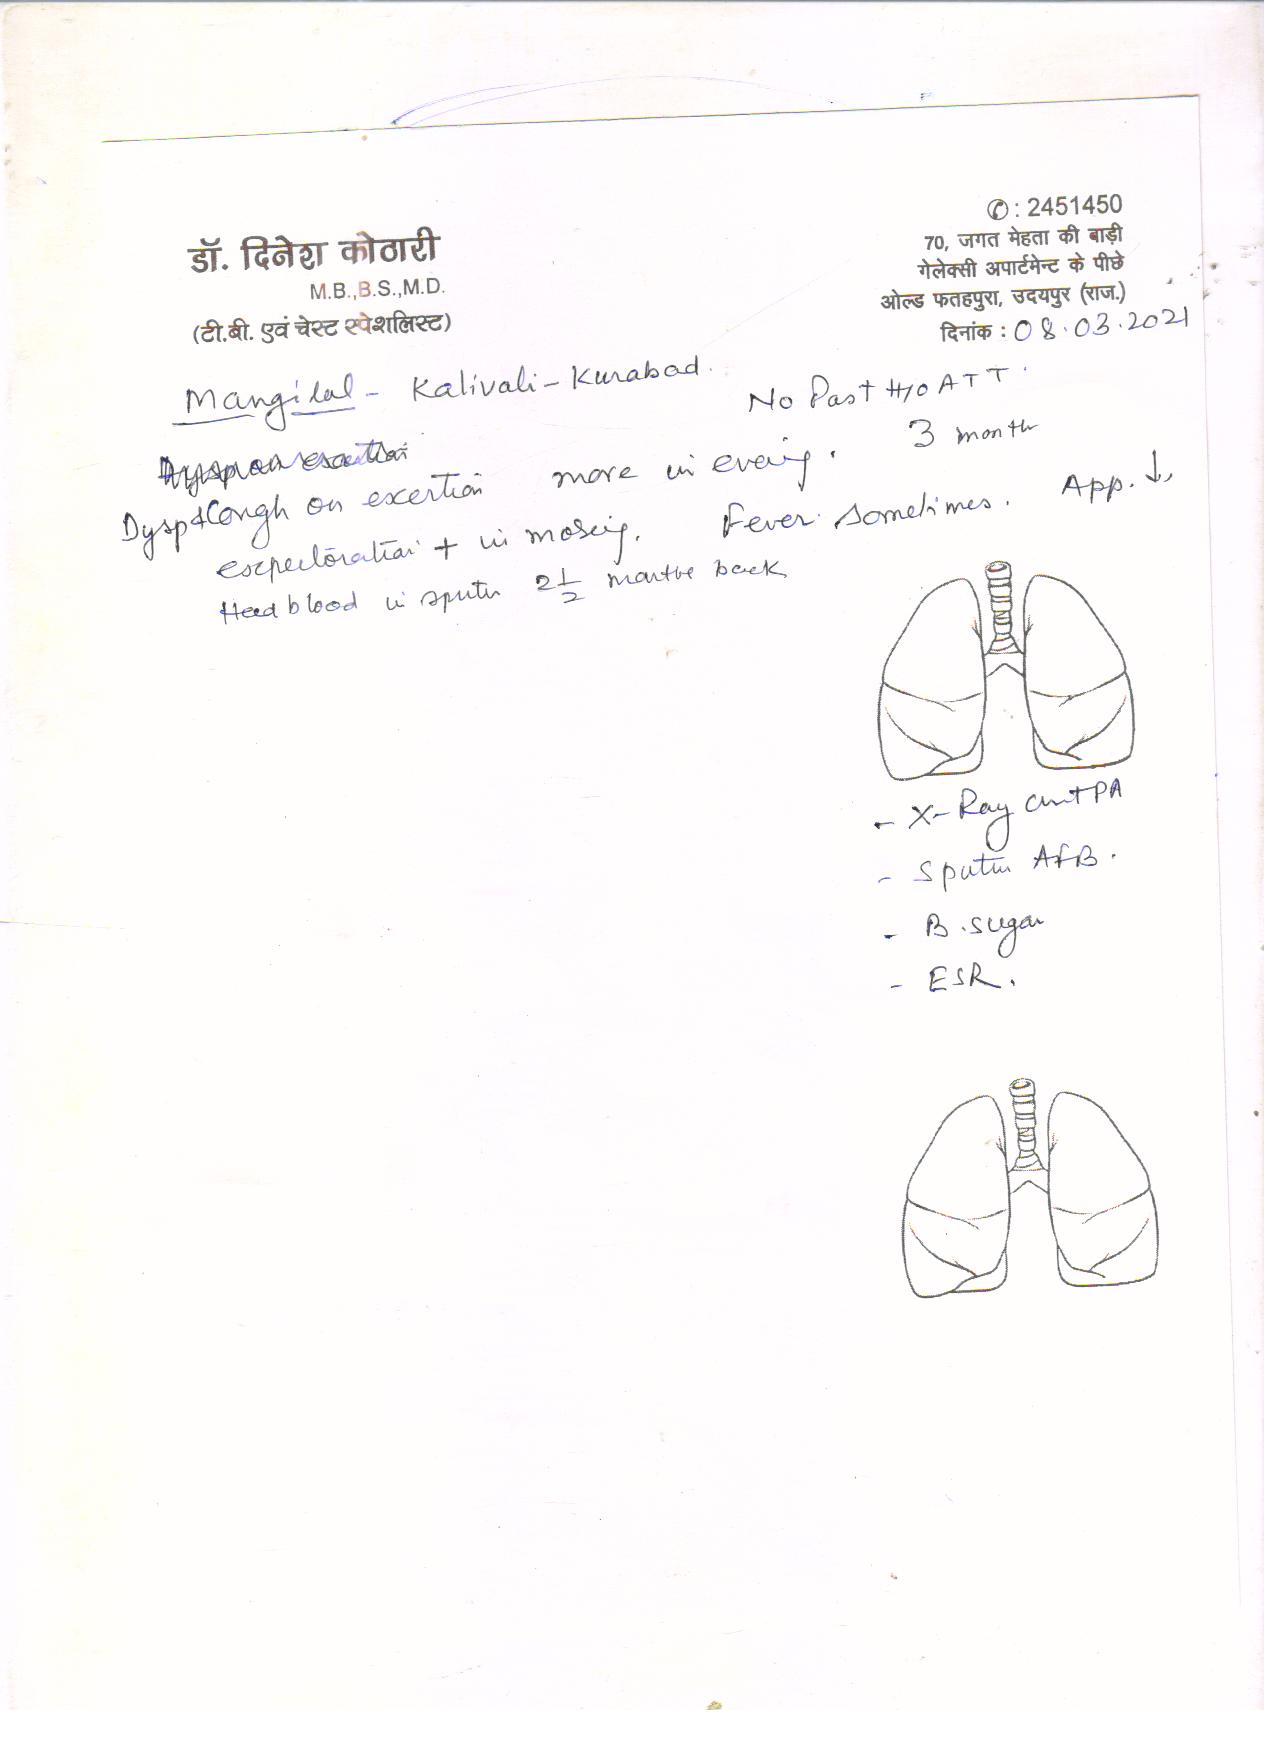 ✆ : 2451450
डॉ. दिनेश कोठारी
M.B.,B.S.,M.D.
(टी.बी. एवं चेस्ट स्पेशलिस्ट)
70, जगत मेहता की बाड़ी
गेलेक्सी अपार्टमेन्ट के पीछे
ओल्ड फतहपुरा, उदयपुर (राज.)
दिनांक : 08.03.2021
Mangilal - Kalivali - Kurabad.
No Past H/O ATT.
Dysp & Cough on excertion more in evening. 3 month
expectoration + in morning. Fever sometimes. App. ↓,
Had blood in sputum 2 1/2 months back
- X-Ray chest PA
- Sputum AFB.
- B.sugar
- ESR.